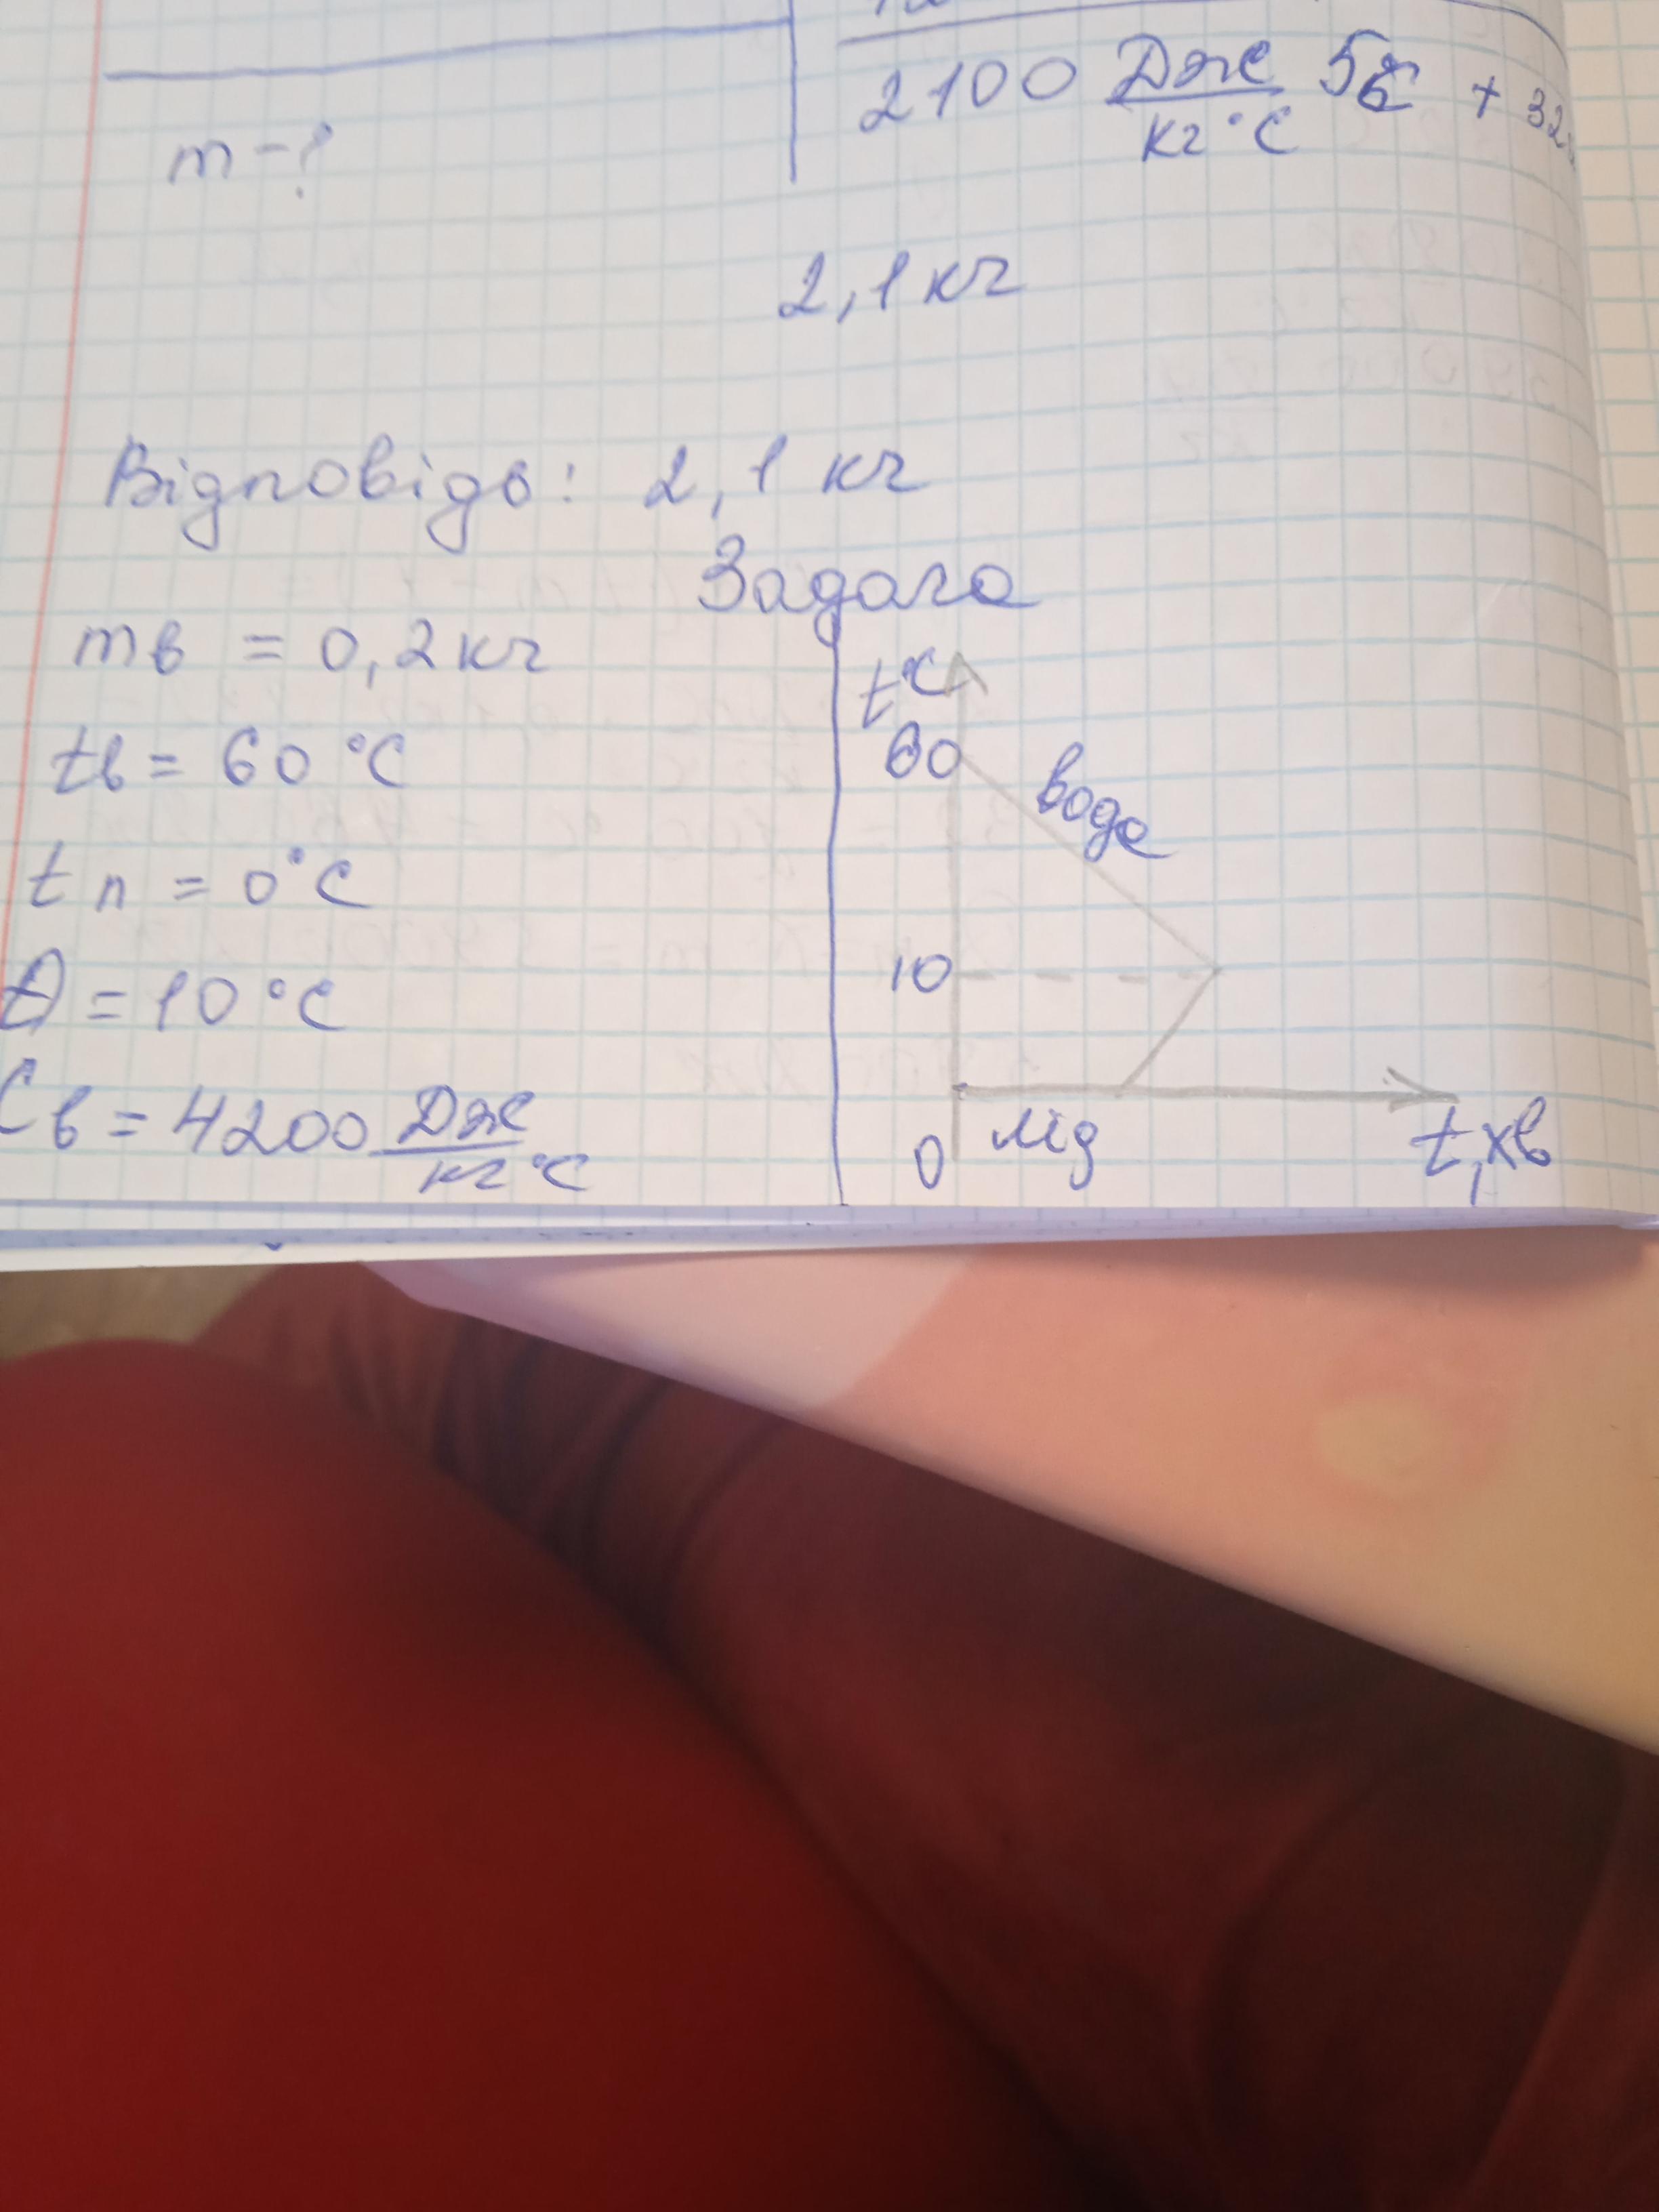 2100 Дж/кг°С 5°С + 32
m - ?
2,1 кг
Відповідь: 2,1 кг
Задача
mв = 0,2 кг
tв = 60 °С
tл = 0°С
t) = 10 °С
Cв = 4200 Дж/кг°С
t°С
60
вода
10
0
лід
t, хв